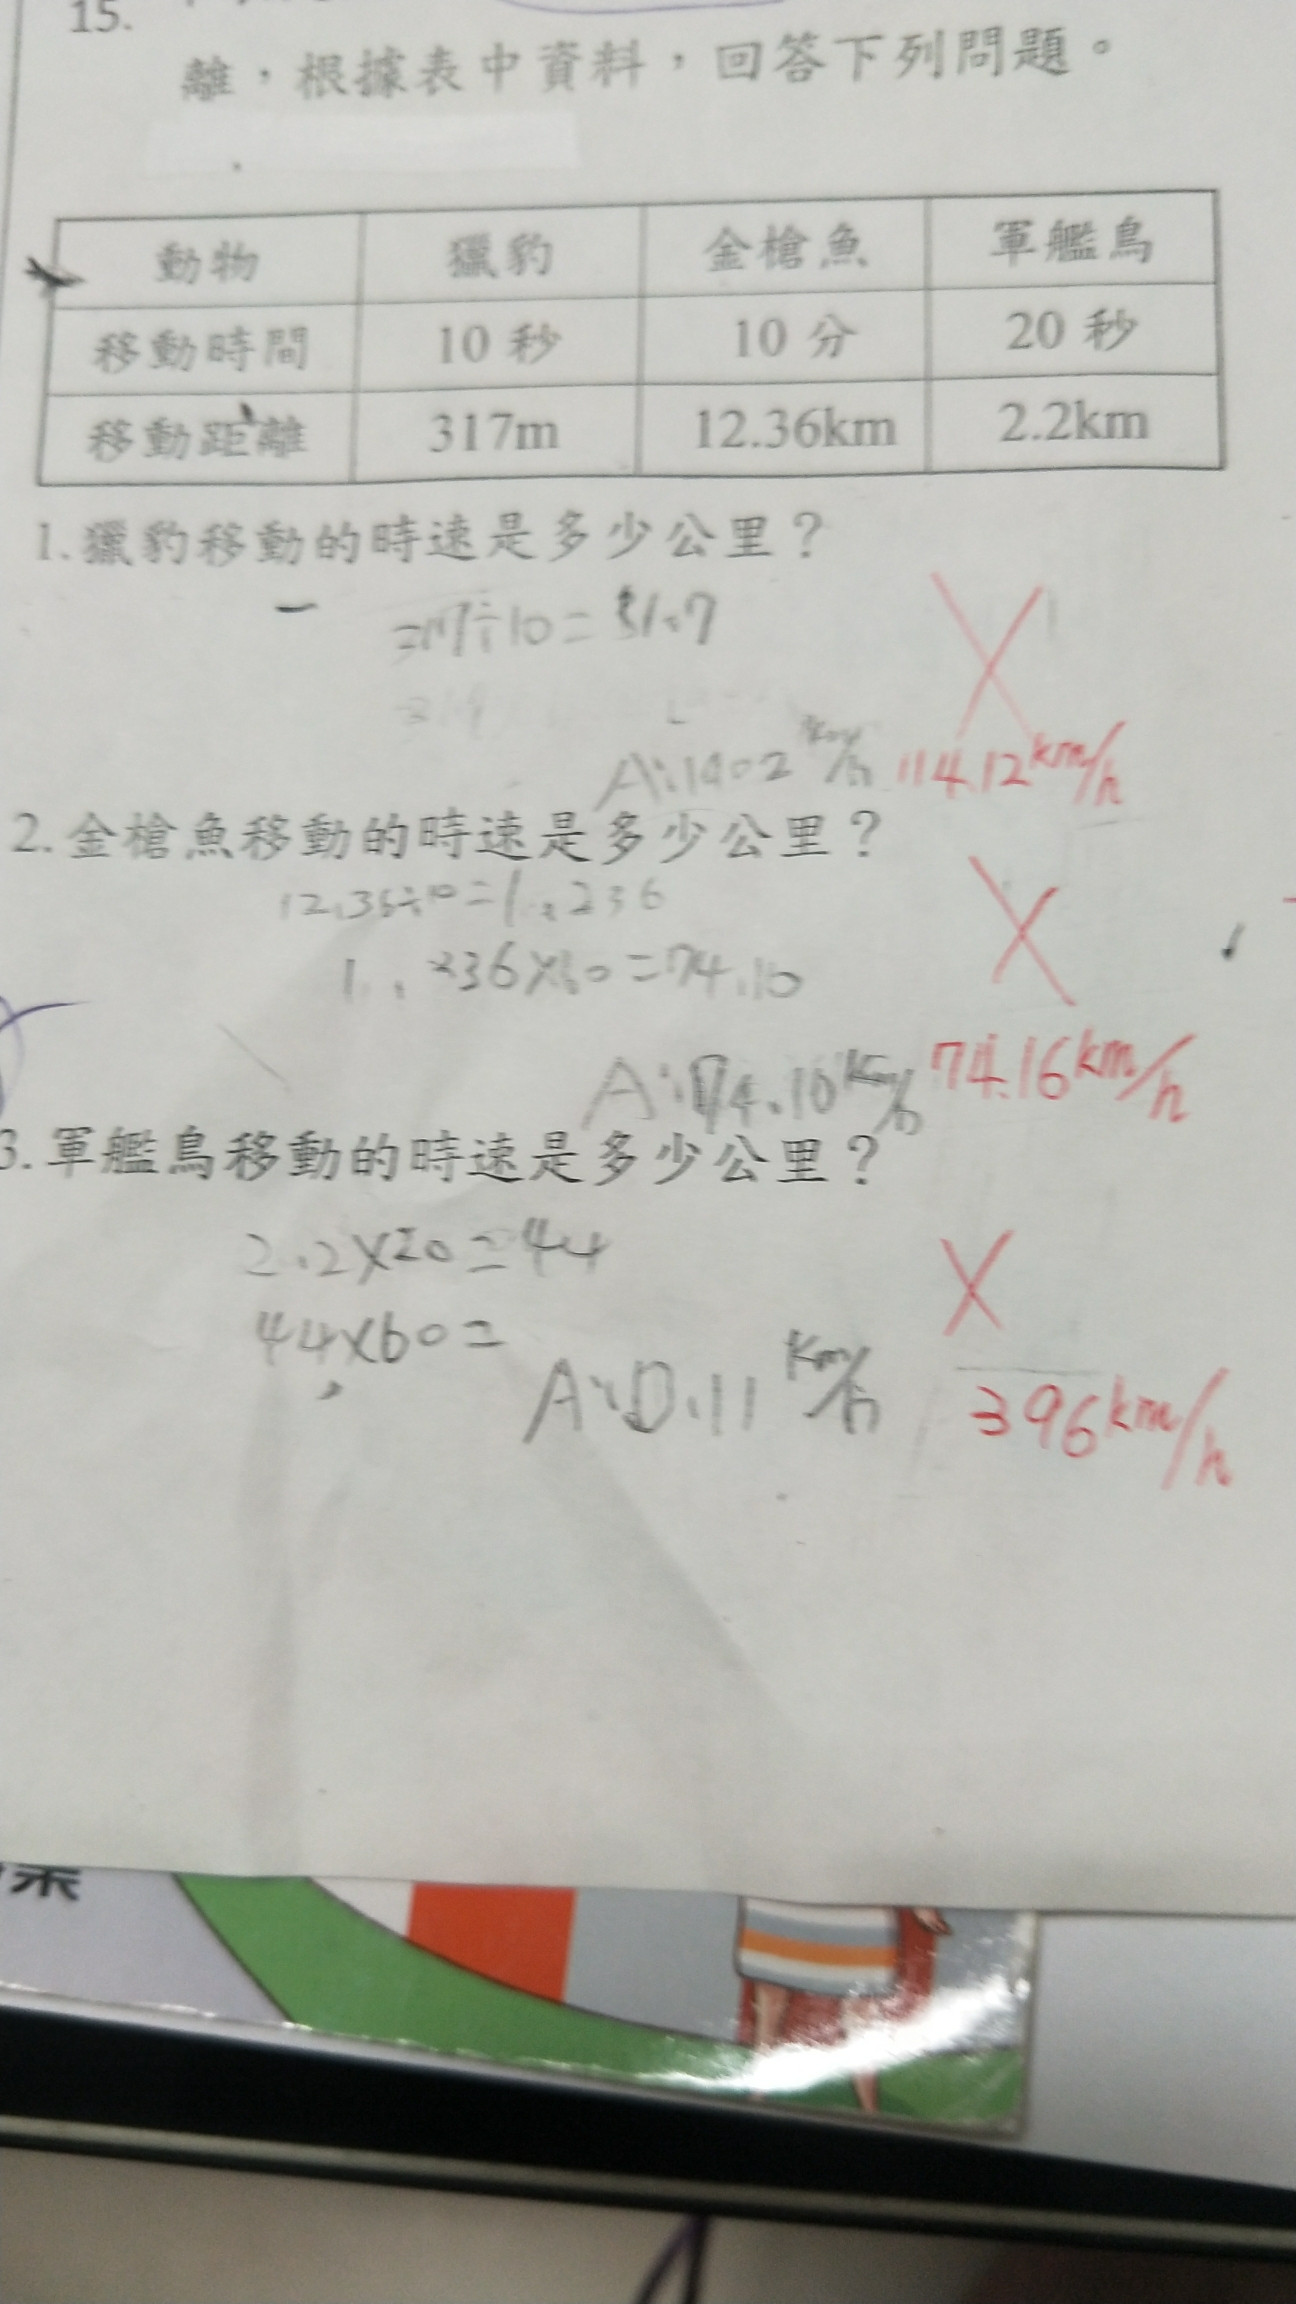 15.
離，根據表中資料，回答下列問題。
動物 獵豹 金槍魚 軍艦鳥
移動時間 10 秒 10 分 20 秒
移動距離 317m 12.36km 2.2km
1.獵豹移動的時速是多少公里？
317÷10=31.7
A:1902km/h 114.12km/h
2.金槍魚移動的時速是多少公里？
12.36÷10=1.236
1.236×60=74.16
A:74.16km/h 74.16km/h
3.軍艦鳥移動的時速是多少公里？
2.2×20=44
44×60=
A:0.11km/h 396km/h